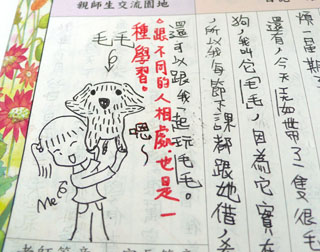 親師生交流園地
換一星期
還有,今天帶了一隻很毛
狗,我叫它毛毛,因為它實在
,所以我每節下課都跟她借,
還可以跟我一起玩毛毛。
跟不同的人相處也是一
種學習。
毛毛
嗯~
Me